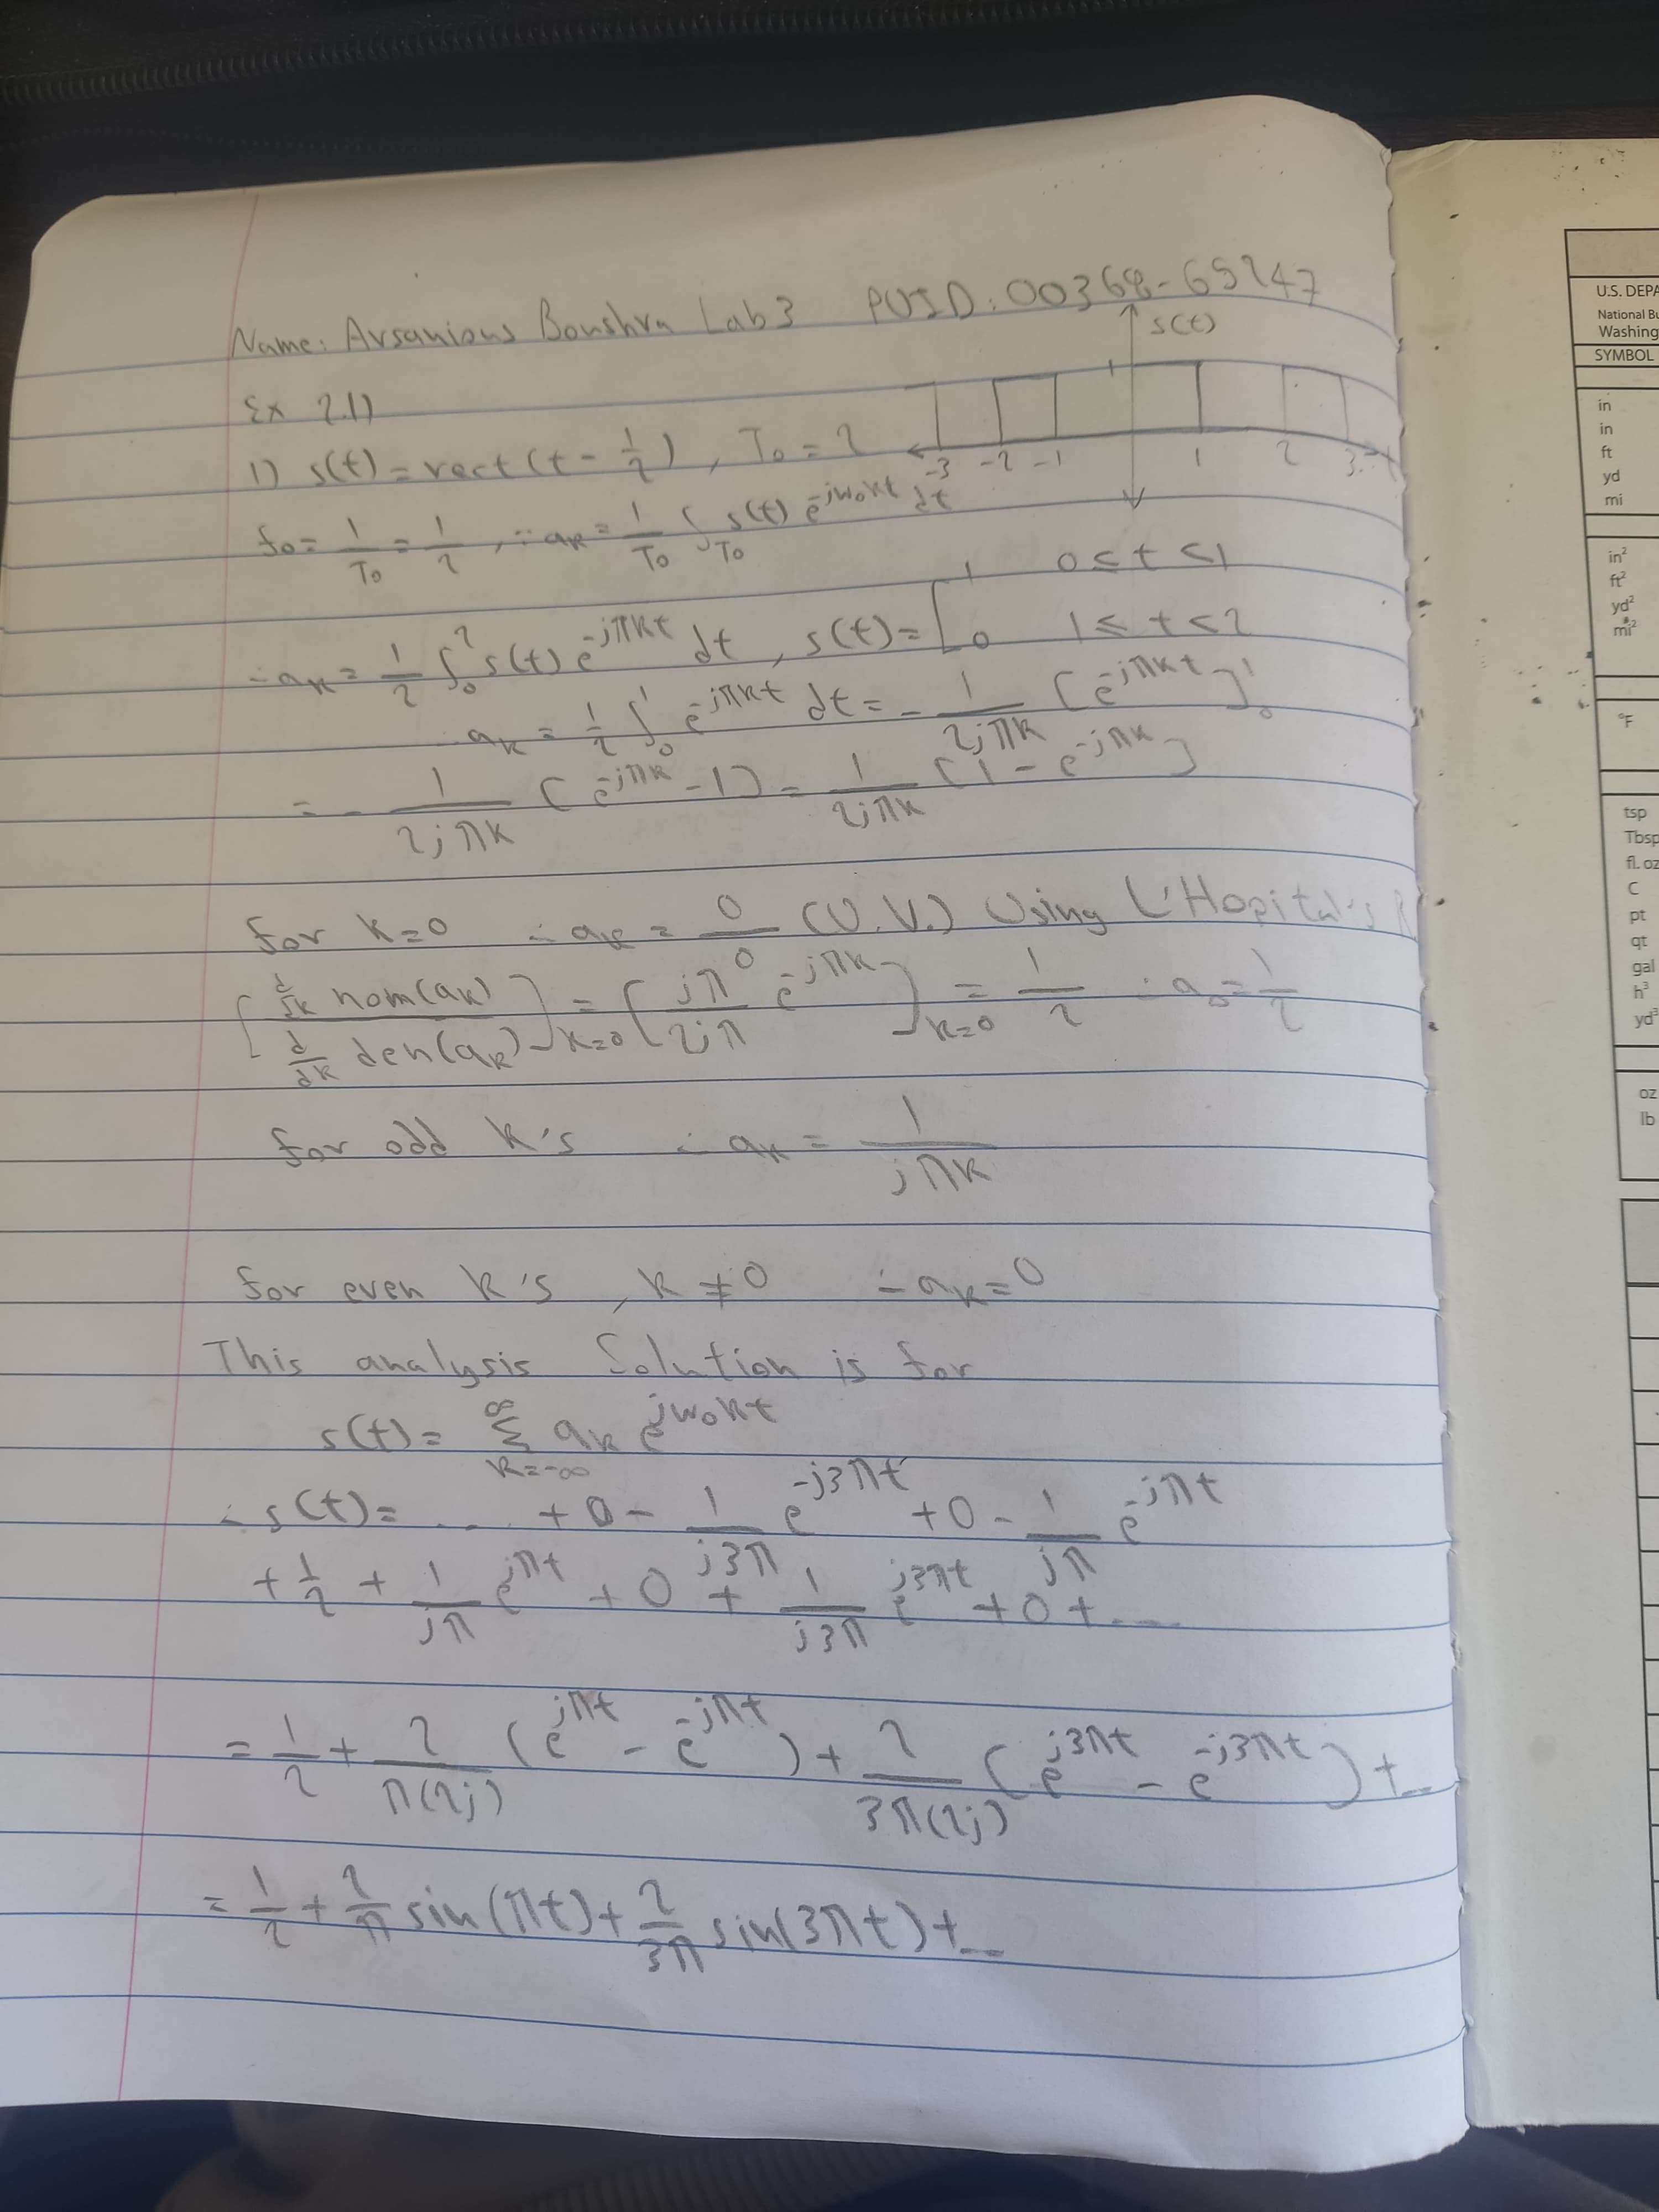 Name: Arsanious Boushra Lab 3 PUID: 00368-65247
s(t)
Ex 2.1)
1) s(t) = rect(t - 1/2), T₀ = 2
-3 -2 -1 1 2 3 t
f₀ = 1/T₀ = 1/2, ∵ aₖ = 1/T₀ ∫_T₀ s(t) e^(-jω₀kt) dt
∴ aₖ = 1/2 ∫₀² s(t) e^(-jπkt) dt, s(t) = [ 1 0 ≤ t < 1
0 1 ≤ t < 2
∴ aₖ = 1/2 ∫₀¹ e^(-jπkt) dt = - 1/(2jπk) [e^(-jπkt)]₀¹
= - 1/(2jπk) [e^(-jπk) - 1] = 1/(2jπk) [1 - e^(-jπk)]
for k=0 ∴ aₖ = 0/0 (U.V.) Using L'Hopital's
[ d/dk nom(aₖ) / d/dk den(aₖ) ]_(k=0) = [ jπ/(2jπ) e^(-jπk) ]_(k=0) = 1/2 ∴ a₀ = 1/2
for odd k's ∴ aₖ = 1/(jπk)
for even k's, k ≠ 0 ∴ aₖ = 0
This analysis Solution is for
s(t) = Σ_(k=-∞)^∞ aₖ e^(jω₀kt)
∴ s(t) = .... + 0 - 1/(j3π) e^(-j3πt) + 0 - 1/(jπ) e^(-jπt)
+ 1/2 + 1/(jπ) e^(jπt) + 0 + 1/(j3π) e^(j3πt) + 0 + ....
= 1/2 + 2/(π(2j)) (e^(jπt) - e^(-jπt)) + 2/(3π(2j)) (e^(j3πt) - e^(-j3πt)) + ...
= 1/2 + 2/π sin(πt) + 2/(3π) sin(3πt) + ...
U.S. DEPA
National Bu
Washing
SYMBOL
in
in
ft
yd
mi
in²
ft²
yd²
mi²
°F
tsp
Tbsp
fl. oz
C
pt
qt
gal
ft³
yd³
oz
lb